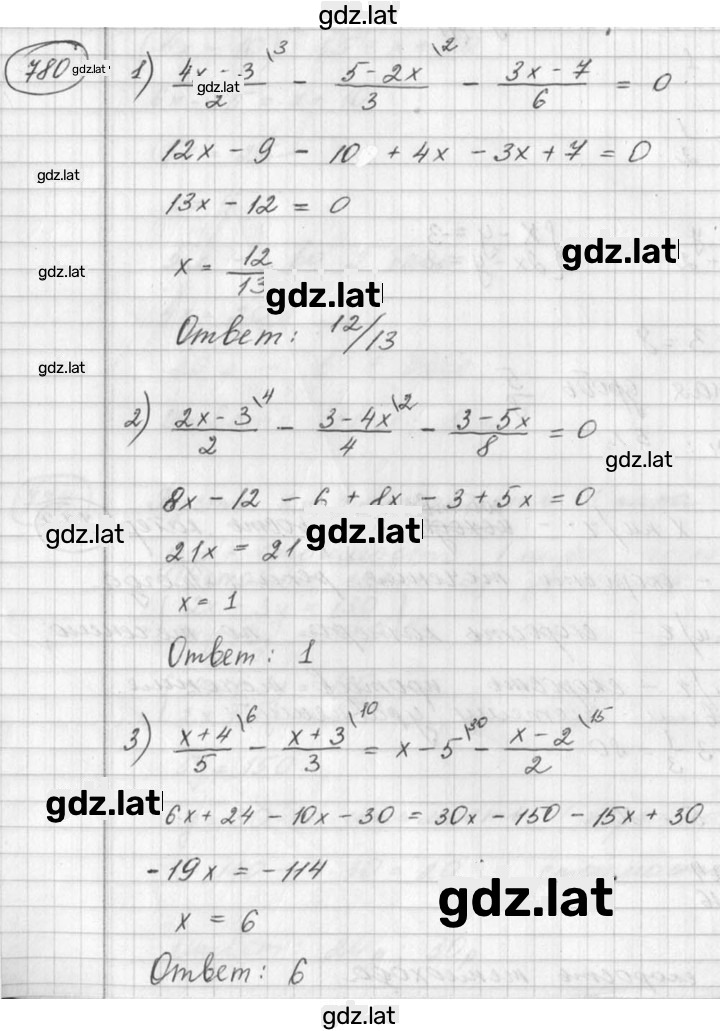 gdz.lat
780 gdz.lat 1) (4x - 3)/2 \3 - (5 - 2x)/3 \2 - (3x - 7)/6 = 0
gdz.lat
12x - 9 - 10 + 4x - 3x + 7 = 0
gdz.lat
13x - 12 = 0
gdz.lat
x = 12/13
gdz.lat
gdz.lat
Ответ: 12/13
gdz.lat
2) (2x - 3)/2 \4 - (3 - 4x)/4 \2 - (3 - 5x)/8 = 0
gdz.lat
8x - 12 - 6 + 8x - 3 + 5x = 0
gdz.lat
gdz.lat
21x = 21
x = 1
Ответ: 1
3) (x + 4)/5 \6 - (x + 3)/3 \10 = x - 5 \30 - (x - 2)/2 \15
gdz.lat
6x + 24 - 10x - 30 = 30x - 150 - 15x + 30
-19x = -114
gdz.lat
x = 6
Ответ: 6
gdz.lat